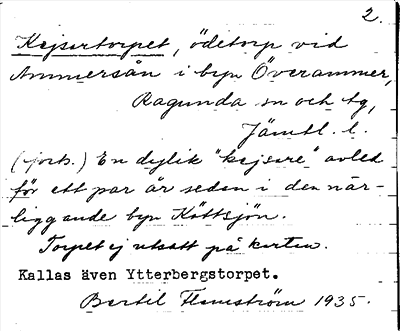 2.
Kejsertorpet, ödetorp vid
Ammersån i byn Överammer,
Ragunda sn och tg,
Jämtl. l.
(forts.) En dylik "kejsare" avled
för ett par år sedan i den när-
liggande byn Köttsjön.
Torpet ej utsatt på kartan.
Kallas även Ytterbergstorpet.
Bertil Flemström 1935.